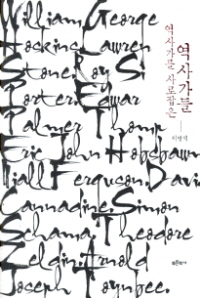 William George
Hoskins Lawren
Stone Roy Si
Porter Edwar
Palmer Thomp
Eric John Hobsbawm
Niall Ferguson David
Cannadine Simon
Schama Theodore
Zeldin Arnold
Joseph Toynbee.
역사가를 사로잡은
역사가들
이영석
푸른역사